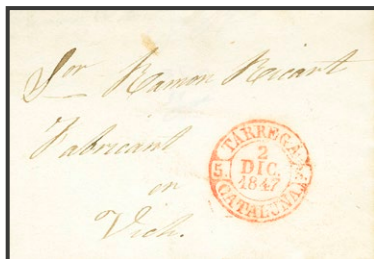 Sor Ramon Ricart
Fabricant
en
Vich.
TARREGA
2
DIC.
1847
5. 5.
CATALUÑA